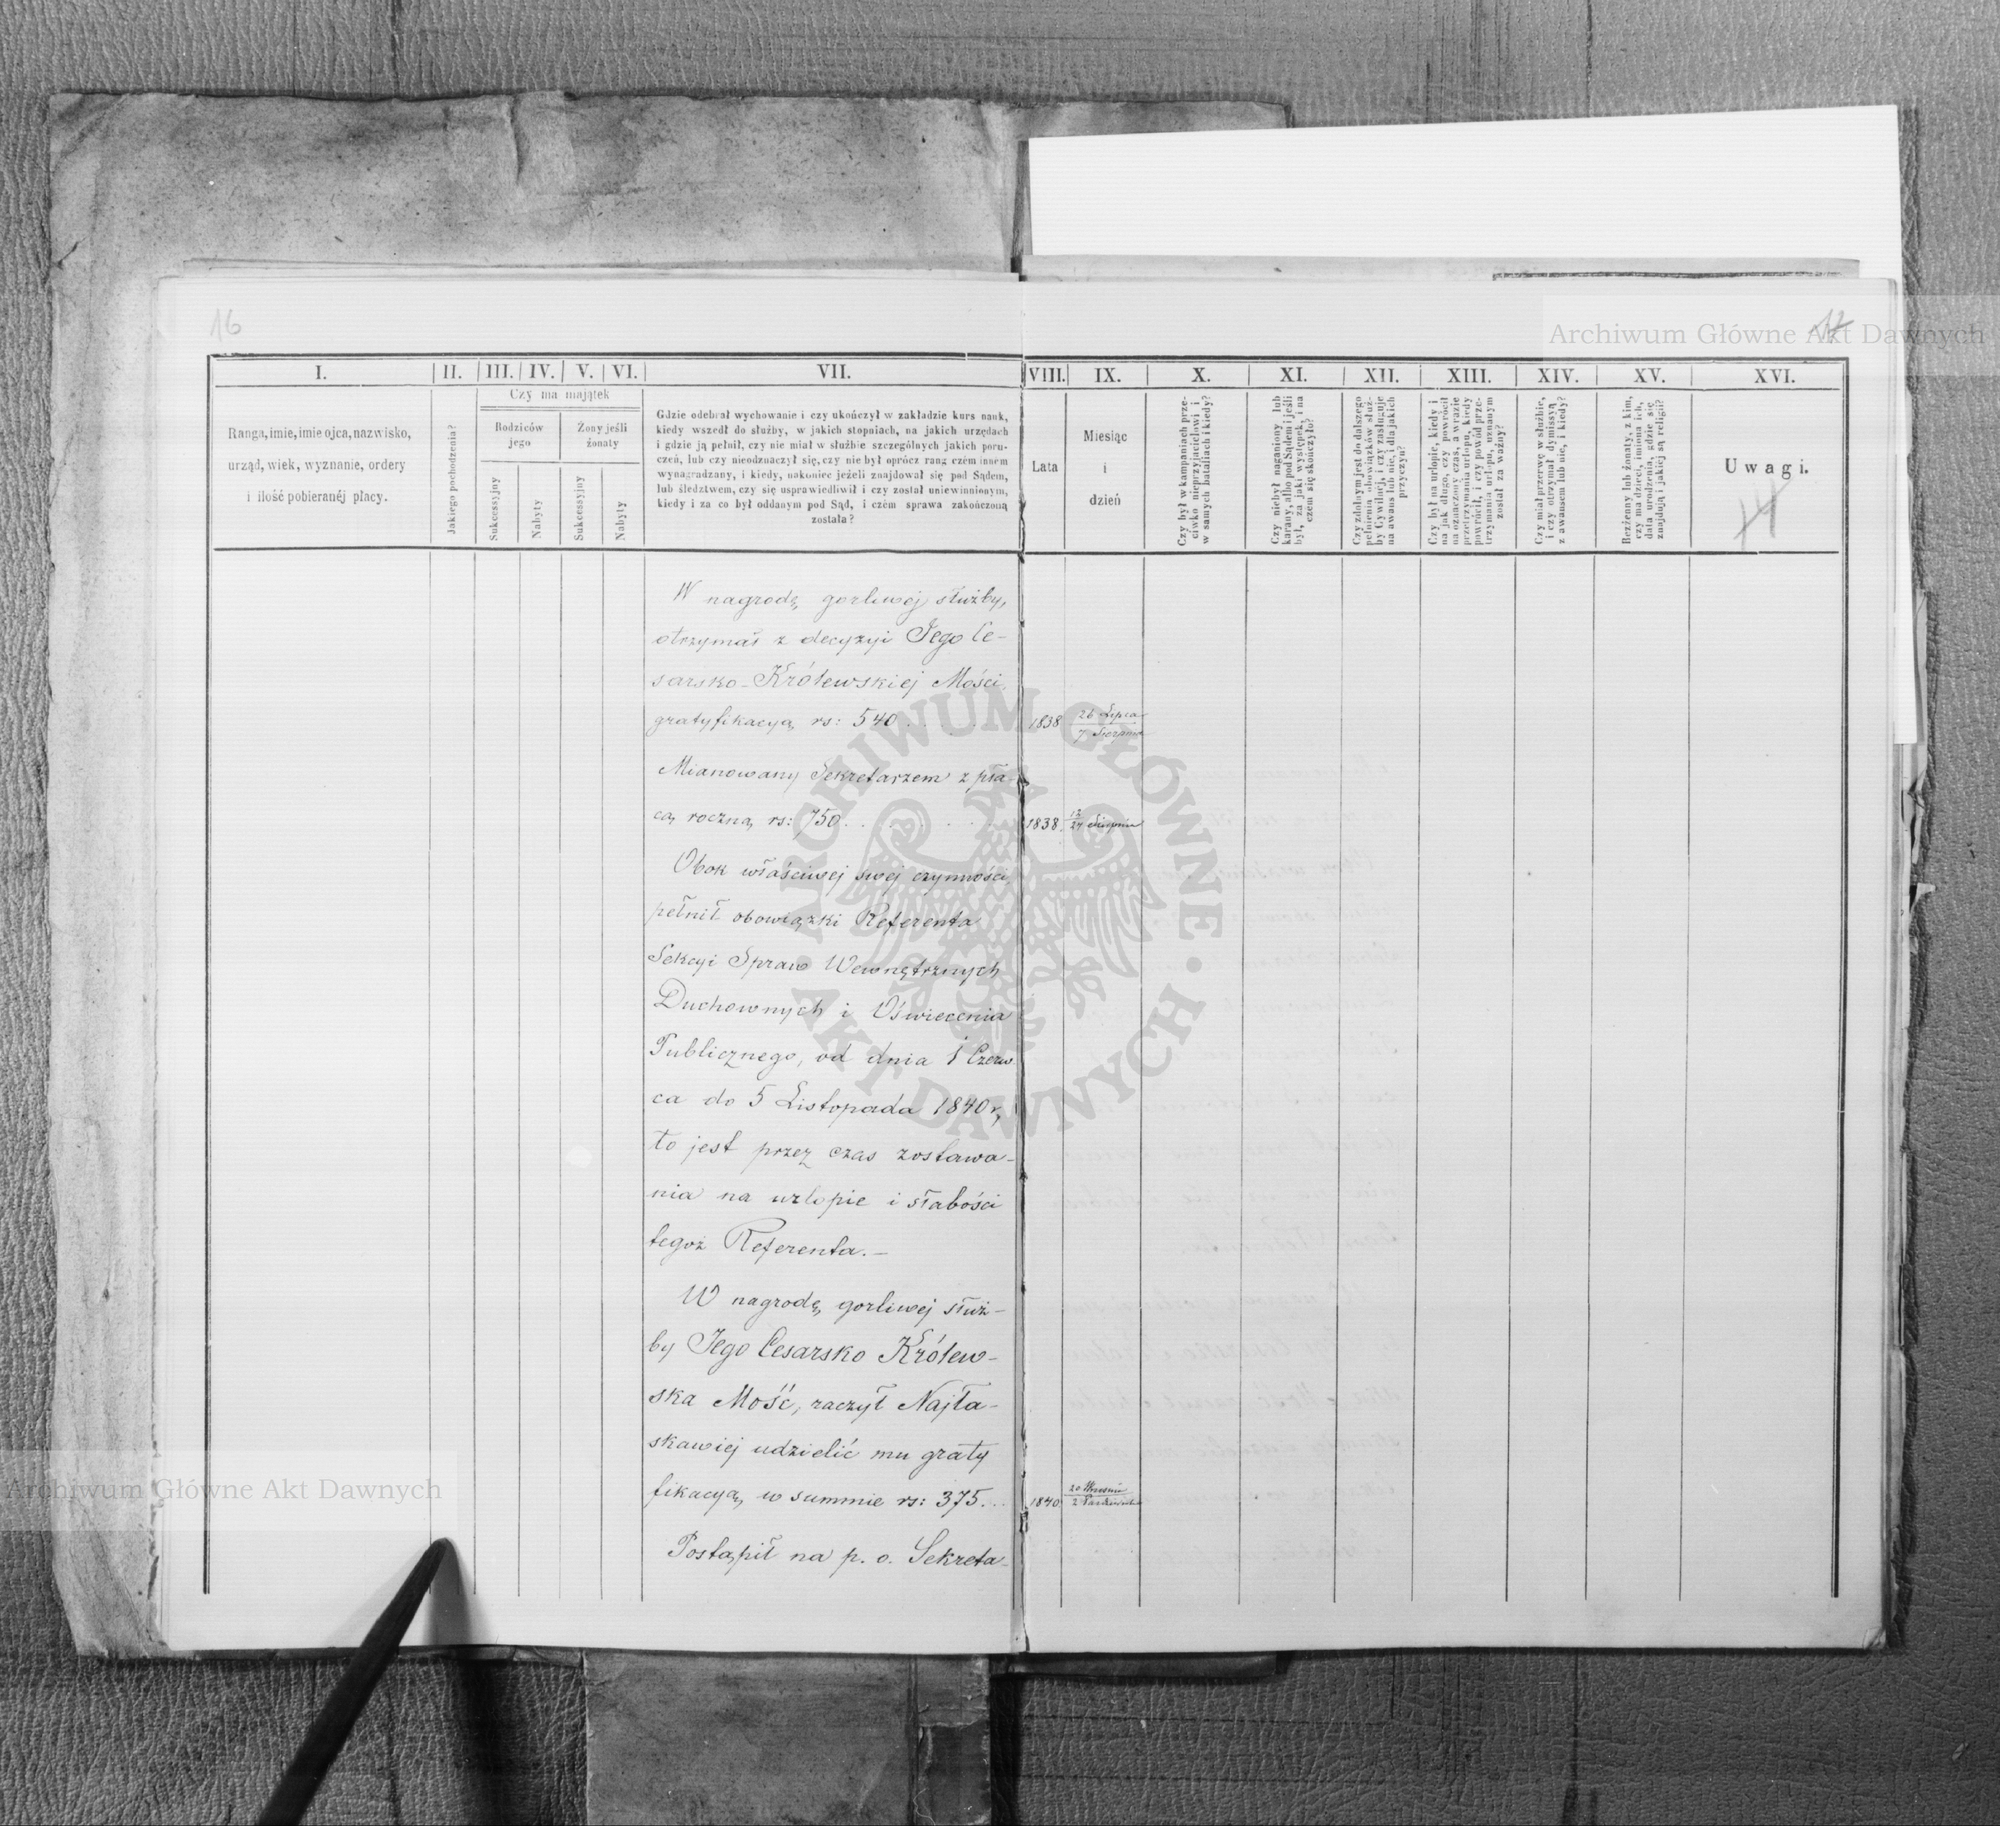 16
17
I.
II.
III.
IV.
V.
VI.
VII.
VIII.
IX.
X.
XI.
XII.
XIII.
XIV.
XV.
XVI.
Ranga, imie, imie ojca, nazwisko,
urząd, wiek, wyznanie, ordery
i ilość pobieranéj płacy.
Jakiego pochodzenia?
Czy ma majątek
Rodziców
jego
Żony jeśli
żonaty
Sukcessyjny
Nabyty
Sukcessyjny
Nabyty
Gdzie odebrał wychowanie i czy ukończył w zakładzie kurs nauk,
kiedy wszedł do służby, w jakich stopniach, na jakich urzędach
i gdzie ją pełnił, czy nie miał w służbie szczególnych jakich poru-
czeń, lub czy nieodznaczył się, czy nie był oprócz rang czém innem
wynagradzany, i kiedy, nakoniec jeżeli znajdował się pod Sądem,
lub śledztwem, czy się usprawiedliwił i czy został uniewinnionym,
kiedy i za co był oddanym pod Sąd, i czém sprawa zakończoną
została?
Lata
Miesiąc
i
dzień
Czy był w kampaniach prze-
ciwko nieprzyjacielowi i
w samych bataliach i kiedy?
Czy niebył naganiony lub
karany, albo pod Sądem i jeśli
był, za jaki występek, i na
czem się skończyło?
Czy zdolnym jest do dalszego
pełnienia obowiązków służ-
by Cywilnej, i czy zasługuje
na awans lub nie, i dla jakich
przyczyn?
Czy był na urlopie, kiedy i
na jak długo, czy powrócił
na oznaczony czas, a w razie
przetrzymania urlopu, kiedy
powrócił, i czy powód prze-
trzymania urlopu, uznanym
został za ważny?
Czy miał przerwę w służbie,
i czy otrzymał dymissyą
z awansem lub nie, i kiedy?
Bezżenny lub żonaty, z kim,
czy ma dzieci, imiona ich,
data urodzenia, gdzie się
znajdują i jakiej są religii?
Uwagi.
W nagrodę gorliwej służby,
otrzymał z decyzyi Jego Ce-
sarsko-Królewskiej Mości,
gratyfikacyą rs: 540 . . . .
1838
26 Lipca
7 Sierpnia
Mianowany Sekretarzem z pła-
cą roczną rs: 750 . . . . . .
1838.
12
24 Sierpnia
Obok właściwej swej czynności,
pełnił obowiązki Referenta
Sekcyi Spraw Wewnętrznych
Duchownych i Oświecenia
Publicznego, od dnia 1 Czerw-
ca do 5 Listopada 1840 r,
to jest przez czas zostawa-
nia na urlopie i słabości
tegoż Referenta.—
W nagrodę gorliwej służ-
by Jego Cesarsko Królew-
ska Mość, raczył Najła-
skawiej udzielić mu graty
fikacyą w summie rs: 375...
1840
20 Września
2 Października
Postąpił na p. o. Sekreta-
Archiwum Główne Akt Dawnych
Archiwum Główne Akt Dawnych
ARCHIWUM GŁÓWNE · AKT DAWNYCH ·